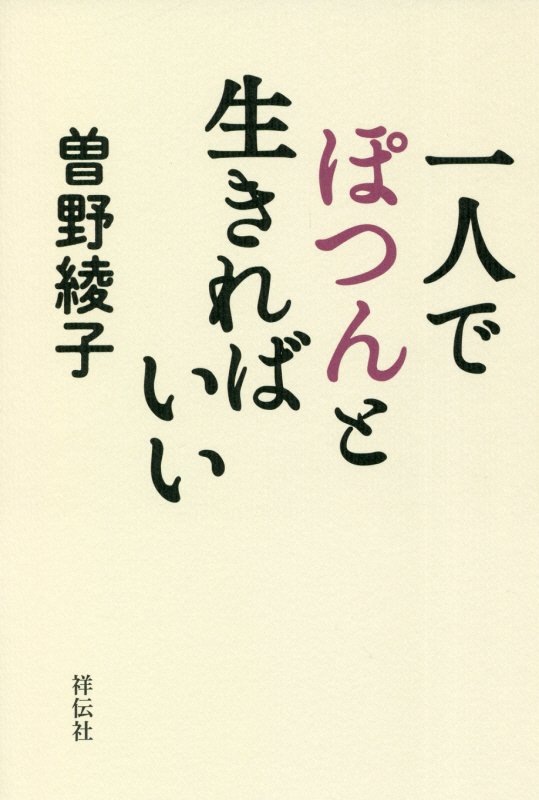 一人で
ぽつんと
生きれば
いい
曽野綾子
祥伝社